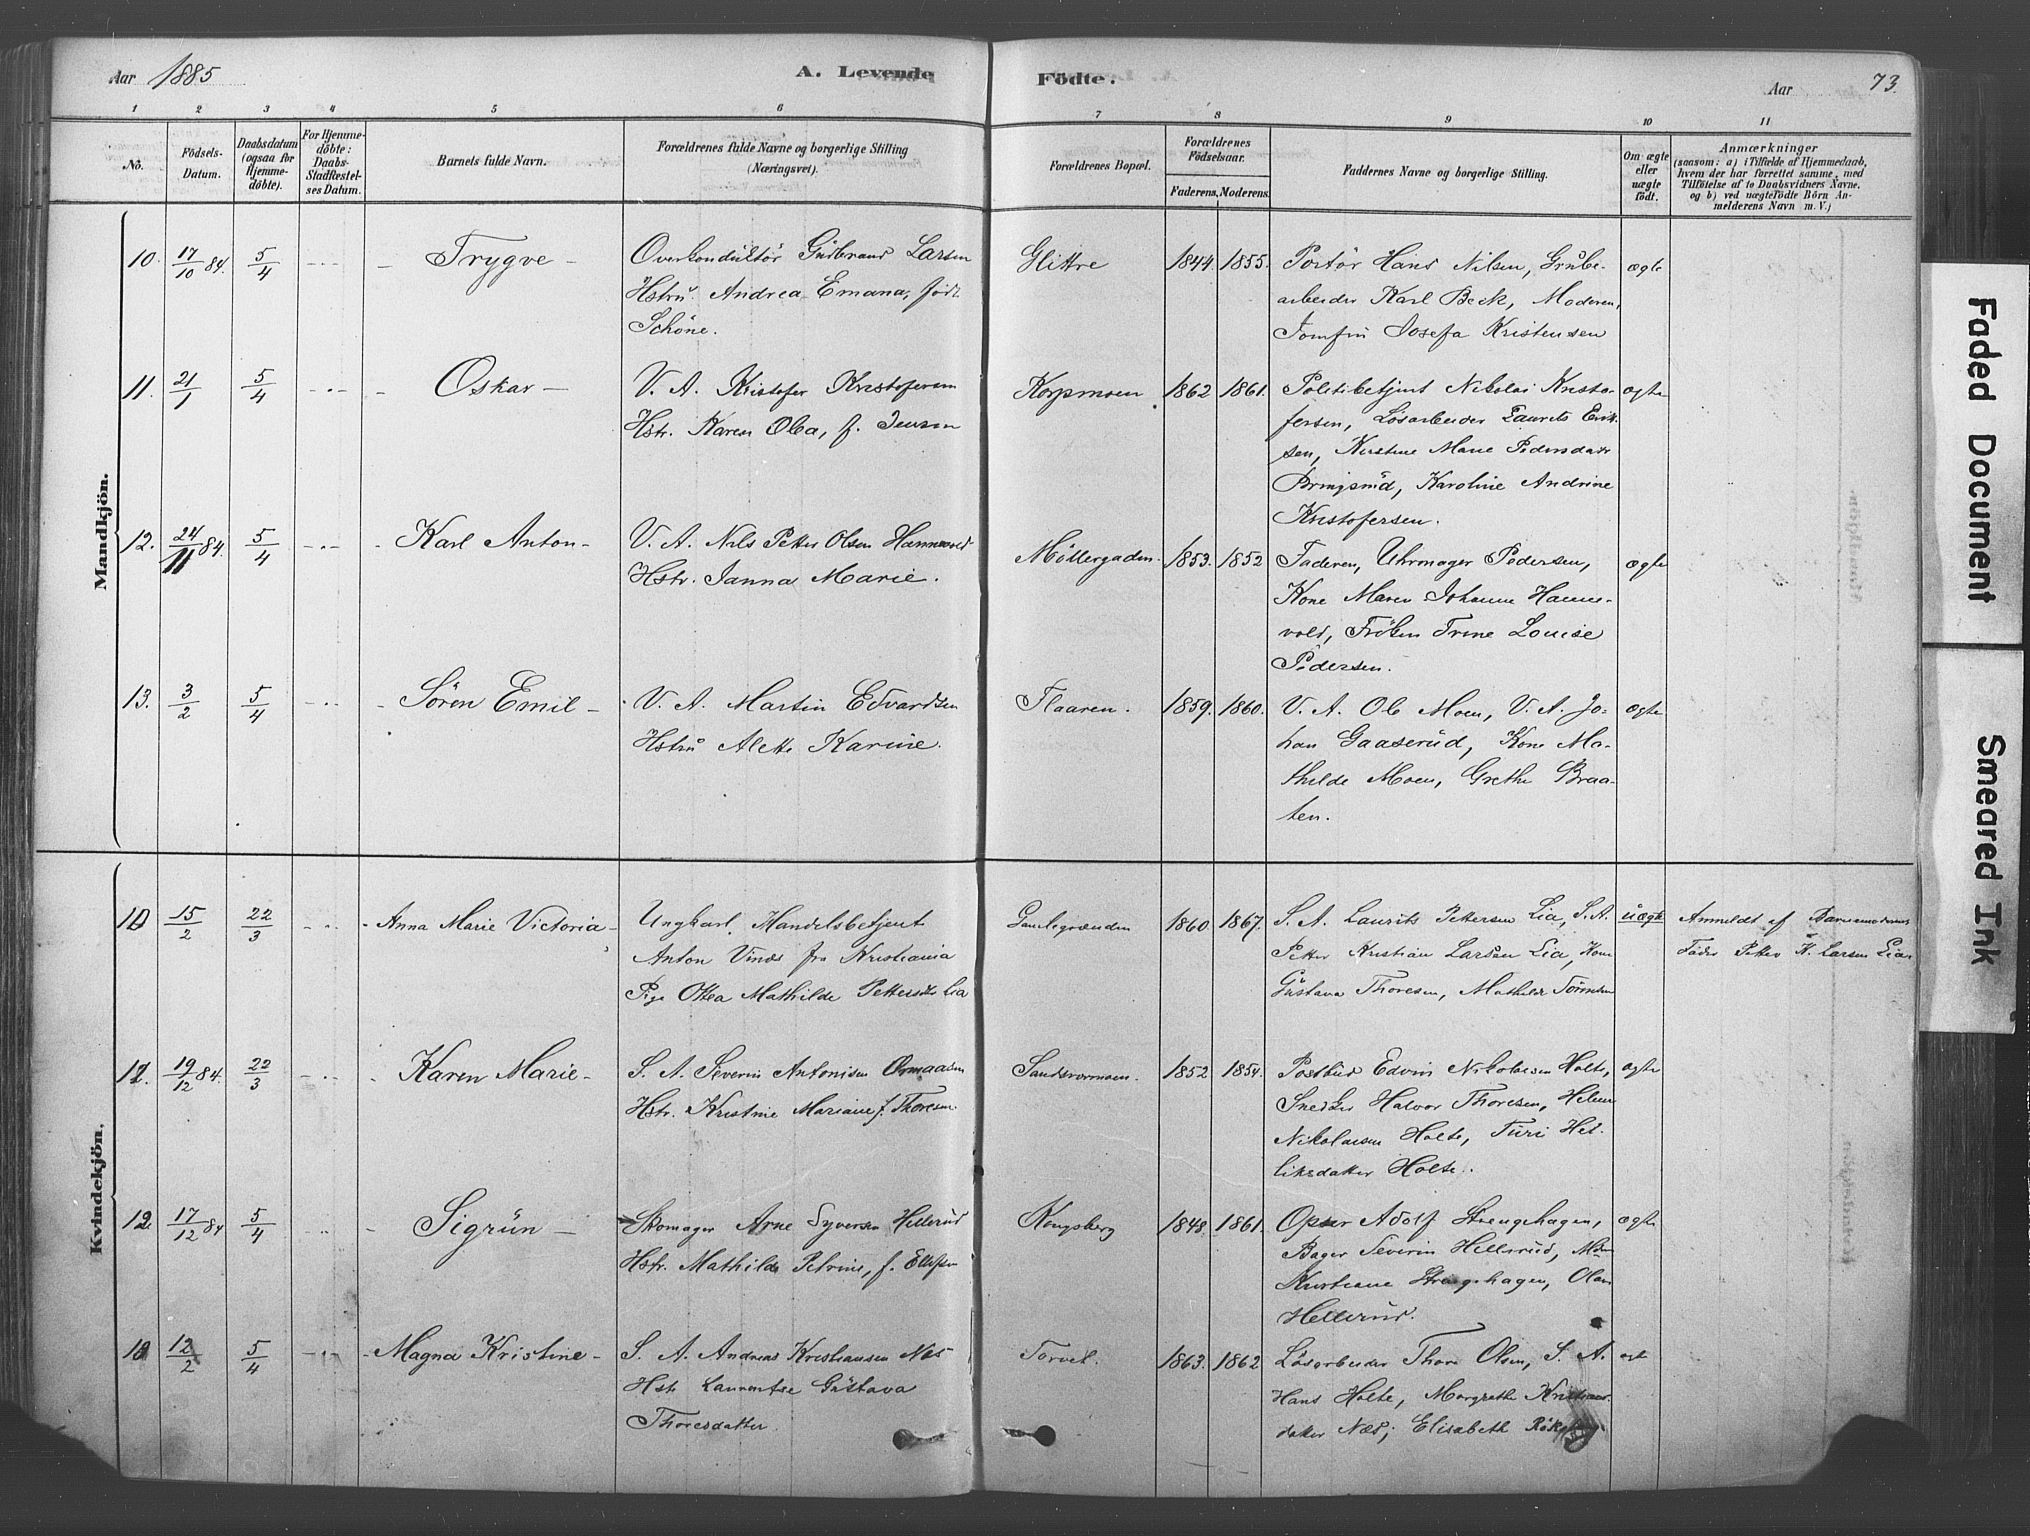 Aar 1885
A. Levende
Födte.
Aar
73.
1 2 3 4 5 6 7 8 9 10 11
Nö.
Födsels-
Datum.
Daabsdatum
(ogsaa for
Hjemme-
döbte).
For Hjemme-
döbte:
Daabs-
Stadfæstel-
ses Datum.
Barnets fulde Navn.
Forældrenes fulde Navne og borgerlige Stilling
(Næringsvei).
Forældrenes Bopæl.
Forældrenes
Födselsaar.
Faderens. Moderens.
Faddernes Navne og borgerlige Stilling.
Om ægte
eller
uægte
födt.
Anmærkninger
(saasom: a) i Tilfælde af Hjemmedaab,
hvem der har forrettet samme, med
Tilföielse af to Daabsvidners Navne.
og b) ved uægtefödte Börn An-
melderens Navn m. V.)
Mandkjön.
10. 17/10 84. 5/4 Trygve
Overkonduktör Gulbrand Larsen
Hstru Andrea Emana, föd
Schöne.
Glittre 1844. 1855.
Portör Hans Nilsen, Grube-
arbeider Karl Beck, Moderen,
Jomfru Josefa Kristensen
ægte
11. 21/1 5/4 Oskar
V. A. Kristofer Kristofersen
Hstr. Karen Olea, f. Jensen
Korpmoen 1862 1861.
Politibetjent Nikolai Kristo-
fersen, Lösarbeider Laurits Erik-
sen, Kirstine Marie Pedersdatr
Bringsrud, Karoline Andrine
Kristofersen.
ægte
12. 24/11 84. 5/4 Karl Anton
V. A. Nils Petter Olsen Hannevold
Hstr. Janna Marie.
Möllergaden. 1853. 1852
Faderen, Uhrmager Pedersen,
Kone Maren Johanne Hanne-
vold, Fröken Trine Louise
Pedersen.
ægte
13. 3/2 5/4 Sören Emil
V. A. Martin Edvardsen
Hstru Alette Karine.
Flaaren. 1859. 1860.
V. A. Ole Moen, V. A. Jo-
han Gaaserud, Kone Ma-
thilde Moen, Grethe Braa-
ten.
ægte
Kvindekjön.
10 15/2 22/3 Anna Marie Victoria
Ungkarl, Handelsbetjent
Anton Vinds fra Kristiania
Pige Ottea Mathilde Pettersdtr Lia
Gamlegrænden 1860. 1867.
S. A. Laurits Pettersen Lia, S. A.
Petter Kristian Larsen Lia, Kone
Gustava Thoresen, Mathilde
uægte
Anmeldt af Barnemoderens
Fader Petter K. Larsen Lia.
11. 19/12 84. 22/3 Karen Marie
S. A. Severin Antonisen Ormaasen
Hstr. Kristine Mariane f. Thoresen.
Sandsværmoen. 1852 1854.
Postbud Edvin Nikolaisen Holte,
Snedker Halvor Thoresen, Helene
Nikolaisen Holte, Turi Hel-
liksdatter Holte.
ægte
12 17/12 84 5/4 Sigrun
Skomager Arne Syversen Hellerud
Hstr. Mathilde Petrine, f. Ellefsen
Kongsberg 1848. 1861.
Adolf Strengehagen,
Bager Severin Hellerud,
Kristiane Strengehagen,
Hellerud.
ægte
13 12/2 5/4 Magna Kristine
S. A. Andreas Kristiansen Næs
Hstr Laurentse Gustava
Thoresdatter
Torvet. 1863. 1862
Lösarbeider Thore Olsen, S. A.
Hans Holte, Margrethe Kristians-
datter Næs, Elisabeth
ægte
Faded Document
Smeared Ink